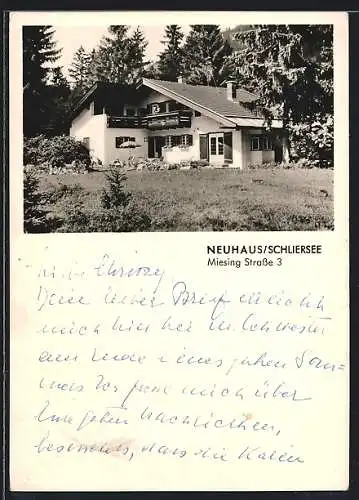 NEUHAUS/SCHLIERSEE
Miesing Straße 3
Liebe
Dein lieber Brief
mich hier bei m. Schwester
am Ende eines guten
freue mich über
Eure guten Nachrichten,
besonders, dass die Karin